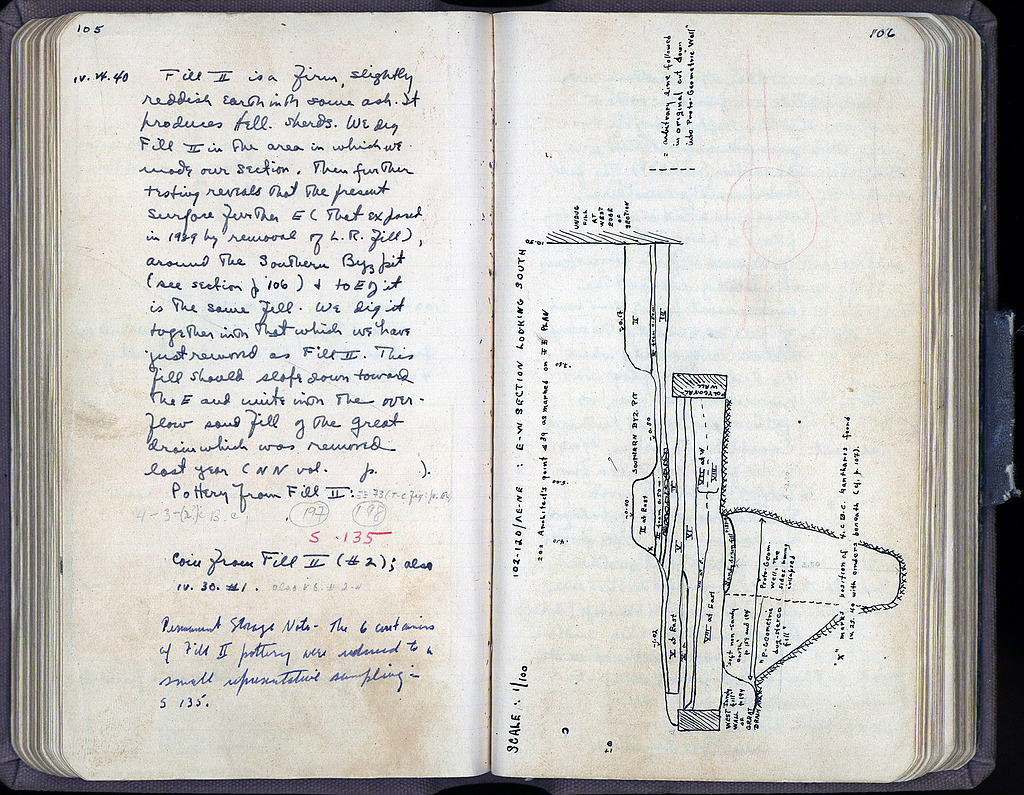 105
iv. 24.40 Fill II is a firm, slightly
reddish earth with some ash. It
produces Hell. sherds. We dig
Fill II in the area in which we
made our section. Then further
testing reveals that the present
surface further E (that exposed
in 1939 by removal of L.R. fill),
around the Southern Byz pit
(see section p 106) & to E of it
is the same fill. We dig it
together with that which we have
just removed as Fill II. This
fill should slope down toward
the E and unite with the over-
flow sand fill of the great
drain which was removed
last year (NN vol. p. ).
Pottery from Fill II:
B.C. 197 198
S 135
Coin from Fill II (#2); also
iv. 30. #1.
Permanent Storage Note - The 6 containers
of Fill II pottery were reduced to a
small representative sampling =
S 135.
106
SCALE : 1/100
102-120/ΛE-NE : E-W SECTION LOOKING SOUTH
200 Architect's point 439 as marked on PLAN
= arbitrary line followed
in original cut down
into Proto-Geometric Well"
UNDUG
FILL
AT
WEST
EDGE
OF
SECTION
II
III
SOUTHERN BYZ. PIT
-0.80
II at East
POLYGONAL
WALL
V
VI
VII at W
VIII
-1.02
V at East
VIII at East
Sandy drain fill
"soft non-sandy
earth"
p 189 and 194
Proto-Geom.
Well, the
sides having
collapsed
3.50
"P-Geometric
dug-stereo
fill"
WEST
WALL
OF
GREAT
DRAIN
"X" marks position of 4. C B.C. kantharos found
iv. 25. 40 with cinders beneath (cf. p. 107).